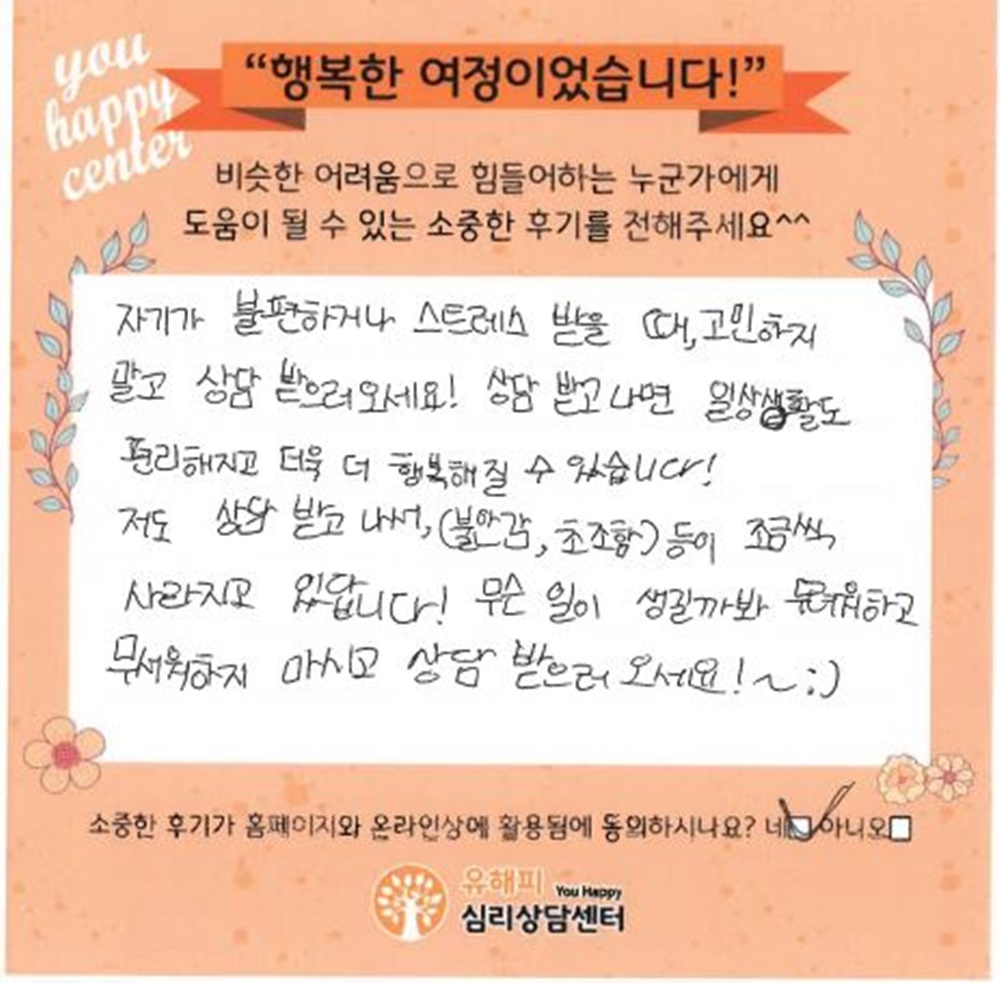 you
happy
center
“행복한 여정이었습니다!”
비슷한 어려움으로 힘들어하는 누군가에게
도움이 될 수 있는 소중한 후기를 전해주세요^^
자기가 불편하거나 스트레스 받을 때, 고민하지
말고 상담 받으러 오세요! 상담 받고 나면 일상생활도
편리해지고 더욱 더 행복해질 수 있습니다!
저도 상담 받고 나서, (불안감, 초조함) 등이 조금씩
사라지고 있답니다! 무슨 일이 생길까봐 두려워하고
무서워하지 마시고 상담 받으러 오세요!~:)
소중한 후기가 홈페이지와 온라인상에 활용됨에 동의하시나요? 네 아니오
유해피 You Happy
심리상담센터